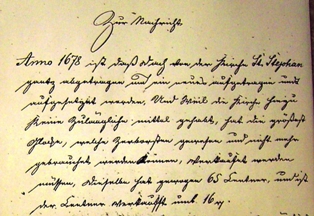 Zur Nachricht.
Anno 1678 ist daß Dach von der Kirche St. Stephan
gantz abgetragen und ein neues aufgetragen und
aufgesetzet worden, Und Weil die Kirch hierzu
Keine Zulängliche mittel gehabt, hat die größeste
Glocke, welche Zerborsten gewesen und nicht mehr
gebrauchet werden können, verkauffet werden
müssen, dieselbe hat gewogen 65 Centner, und ist
der Centner verkaufft umb 16